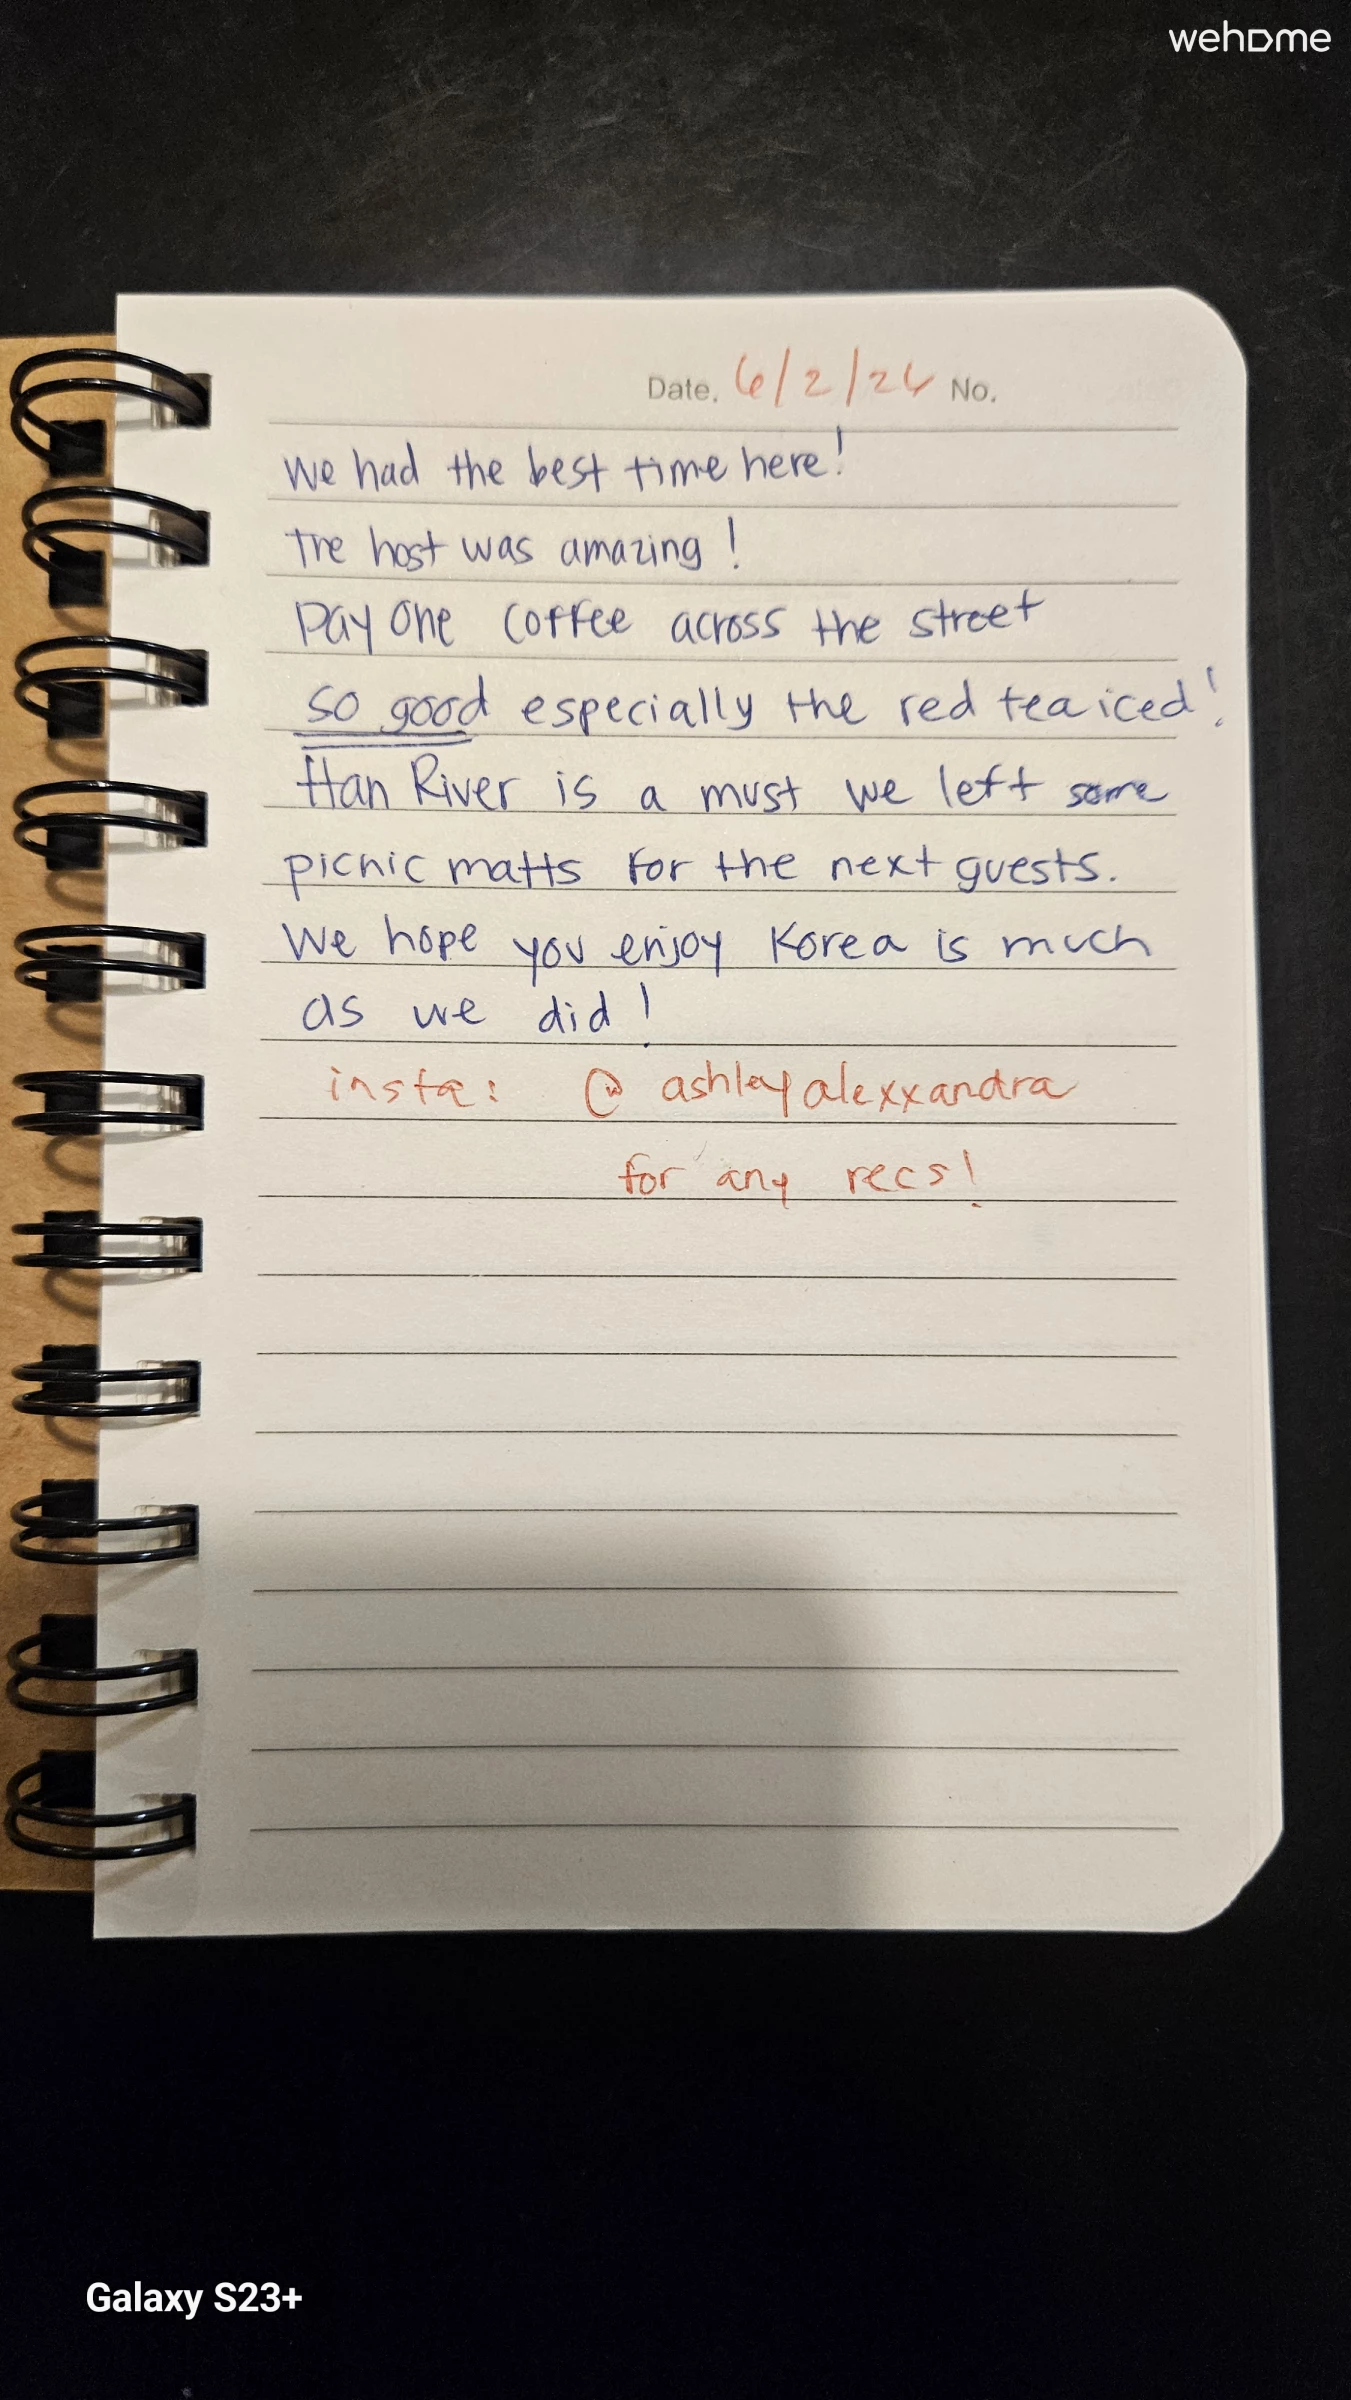 wehome
Date. 6/2/26 No.
We had the best time here!
The host was amazing!
Day One Coffee across the street
so good especially the red tea iced!
Han River is a must we left some
picnic matts for the next guests.
We hope you enjoy Korea is much
as we did!
insta: @ashleyalexxandra
for any recs!
Galaxy S23+